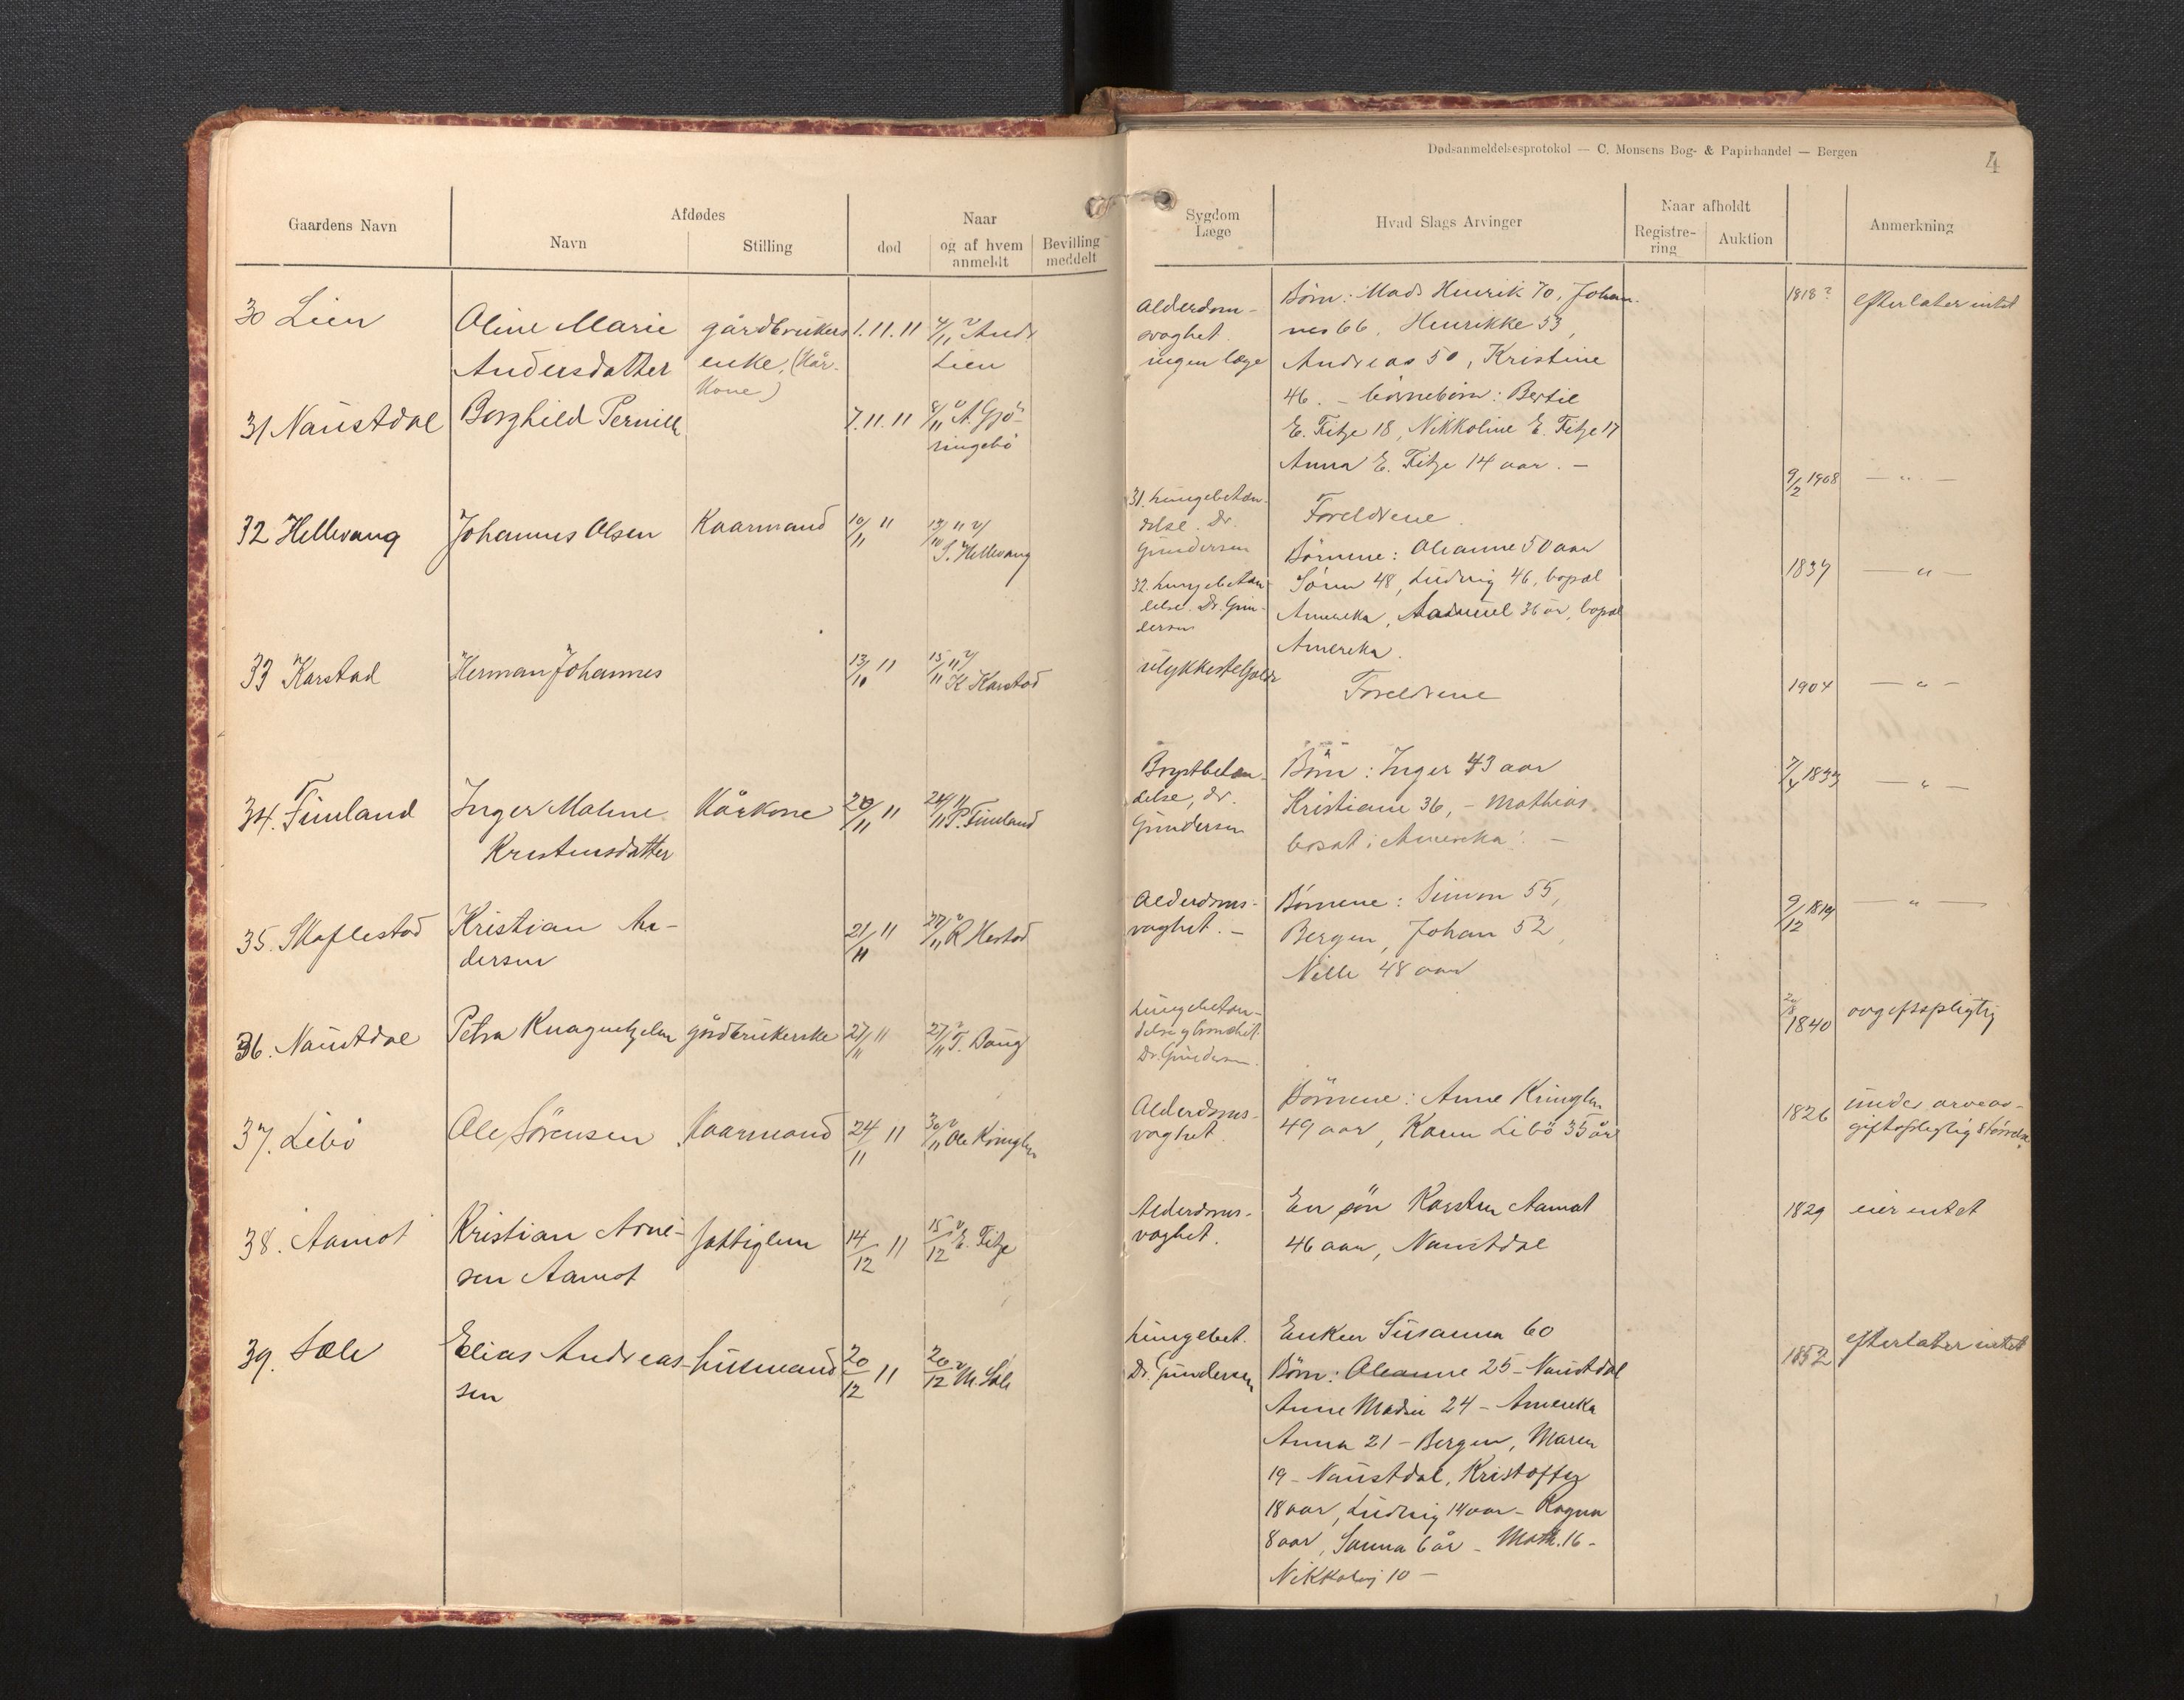 Dødsanmeldelsesprotokol — C. Monsens Bog- & Papirhandel — Bergen
4
Gaardens Navn
Afdødes
Navn
Stilling
Naar
død
og af hvem
anmeldt
Bevilling
meddelt
Sygdom
Læge
Hvad Slags Arvinger
Naar afholdt
Registre-
ring
Auktion
Anmerkning
30 Lien
Oline Marie
Andersdatter
gårdbrukers
enke, (Kår-
Kone)
1.11.11
4/11 v Andr
Lien
Alderdom-
svaghet.
ingen læge
Börn: Mads Henrik 70, Johan-
nes 66, Henrikke 53,
Andreas 50, Kristine
46. – börnebörn: Bertil
E. Fitje 18, Nikkoline E. Fitje 17
Anna E. Fitje 14 aar. –
1818?
efterlater intet
31 Naustdal
Borghild Pernille
7.11.11
8/11 v A. Gjö-
ringebö
31. lungebetæn-
delse. Dr.
Gundersen
Foreldrene.
9/2 1908
— " —
32 Hellevang
Johannes Olsen
Kaarmand
10/11 11
13/11 11 v/
S. Hellevang
32. lungebetæn-
delse. Dr. Gun-
dersen
Börnene: Oleanne 50 aar
Sönn 48, Ludvig 46, bopæl
Amerika, Samuel 36 år, bopæl
Amerika.
1837
— " —
33 Karstad
Herman Johannes
13/10 11
15/11 11 v/
K Karstad
ulykkestilfælde
Foreldrene
1904
— " —
34. Fimland
Inger Maline
Kristensdatter
Kårkone
20/11 11
24/11 11
P. Fimland
Brystbetæn-
delse, dr.
Gundersen
Börn: Inger 43 aar
Kristiane 36, – Mathias
bosat i Amerika. –
7/4 1833
— " —
35. Skaflestad
Kristian An-
dersen
21/11 11
22/11 v R Hestad
Alderdoms-
svaghet. –
Börnene: Simon 55,
Bergen, Johan 52,
Nille 48 aar
9/12 1819
— " —
36. Naustdal
Petra Knagenhjelm
gårdbrukerske
21/11 11
27/11 v T. Daug
lungebetæn-
delse
Dr. Gundersen
1840
avgiftspligtig
37. Libö
Ole Sörensen
Kaarmand
24/11 11
30/11 v Ole Kringlen
Alderdoms-
vaghet.
Börnene: Anne Kringlen
49 aar, Karen Libö 35 år
1826
under arveav-
giftspligtig störrelse
38. Aamot
Kristian Arne-
sen Aamot
fattiglem
14/12 11
15/12 v E. Fitje
Alderdoms-
vaghet.
En sön Karsten Aamot
46 aar, Naustdal
1829
eier intet
39. Sæle
Elias Andreas-
sen
husmand
20/12 11
20/12 v M. Sæle
lungebet.
Dr. Gundersen
Enken Susanna 60
Börn: Oleanne 25 – Naustdal
Anne Madsi 24 – Amerika
Anna 21 – Bergen, Maren
19 – Naustdal, Kristoffer
18 aar, Ludvig 14 aar – Ragna
8 aar, Sanna 6 år – Math. 16 –
Nikkolaj 10 –
1852
efterlater intet